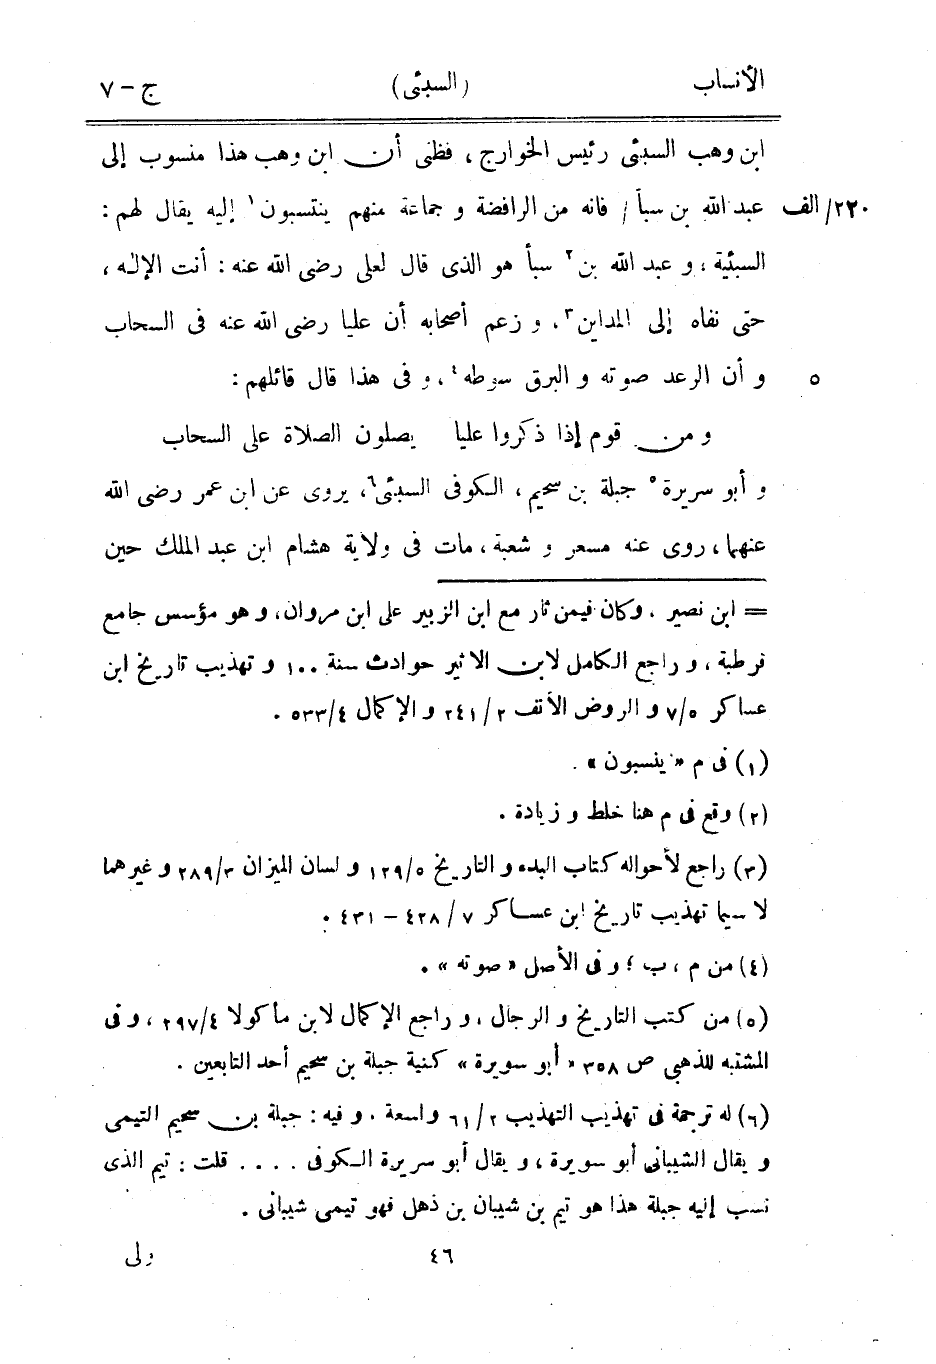 الأنساب (السبئى) ج – ٧
ابن وهب السبئى رئيس الخوارج، فظنى أن ابن وهب هذا منسوب إلى
٢٢٠/الف عبد الله بن سبأ / فانه من الرافضة و جماعة منهم ينتسبون١ إليه يقال لهم:
السبئية، و عبد الله بن٢ سبأ هو الذى قال لعلى رضى الله عنه: أنت الإلٰه،
حتى نفاه إلى المداين٣، و زعم أصحابه أن عليا رضى الله عنه فى السحاب
٥ و أن الرعد صوته و البرق سوطه٤، و فى هذا قال قائلهم:
و من قوم إذا ذكروا عليا يصلون الصلاة على السحاب
و أبو سريرة٥ جبلة بن سحيم، الكوفى السبئى٦، يروى عن ابن عمر رضى الله
عنهما، روى عنه مسعر و شعبة، مات فى ولاية هشام ابن عبد الملك حين
= ابن نصير، وكان فيمن ثار مع ابن الزبير على ابن مروان، و هو مؤسس جامع
قرطبة، و راجع الكامل لابن الاثير حوادث سنة ١٠٠ و تهذيب تاريخ ابن
عساكر ٧/٥ و الروض الأنف ٢٤١/٢ و الإكمال ٥٣٣/٤.
(١) فى م «ينسبون».
(٢) وقع فى م هنا خلط و زيادة.
(٣) راجع لأحواله كتاب البدء و التاريخ ١٢٩/٥ و لسان الميزان ٢٨٩/٣ و غيرهما
لا سيما تهذيب تاريخ ابن عساكر ٧/ ٤٢٨ – ٤٣١.
(٤) من م، ب؛ و فى الأصل «صوته».
(٥) من كتب التاريخ و الرجال، و راجع الإكمال لابن مأكولا ٢٩٧/٤، و فى
المشتبه للذهبى ص ٣٥٨ «أبو سويرة» كنية جبلة بن سحيم أحد التابعين.
(٦) له ترجمة فى تهذيب التهذيب ٦١/٢ واسعة. و فيه: جبلة بن سحيم التيمى
و يقال الشيبانى أبو سويرة، و يقال أبو سريرة الكوفى .... قلت: تيم الذى
نسب إليه جبلة هذا هو تيم بن شيبان بن ذهل فهو تيمى شيبانى.
٤٦ ولى